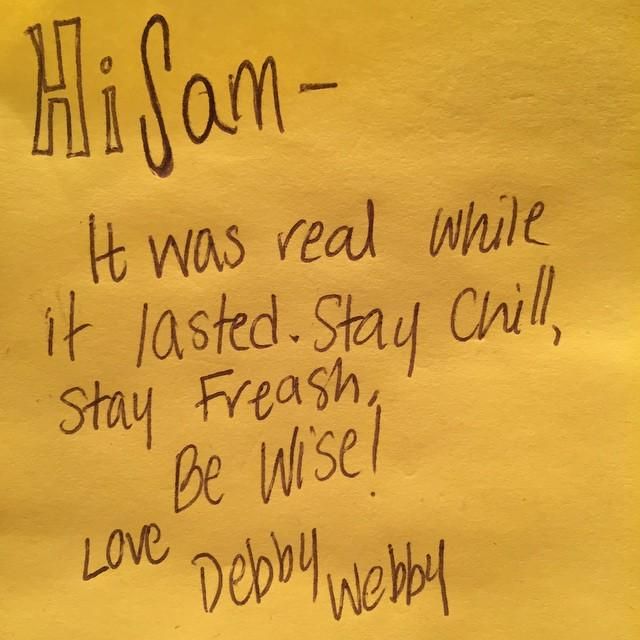 Hi Sam -
It was real while
it lasted. Stay Chill,
Stay Freash,
Be Wise!
Love
Debby Webby